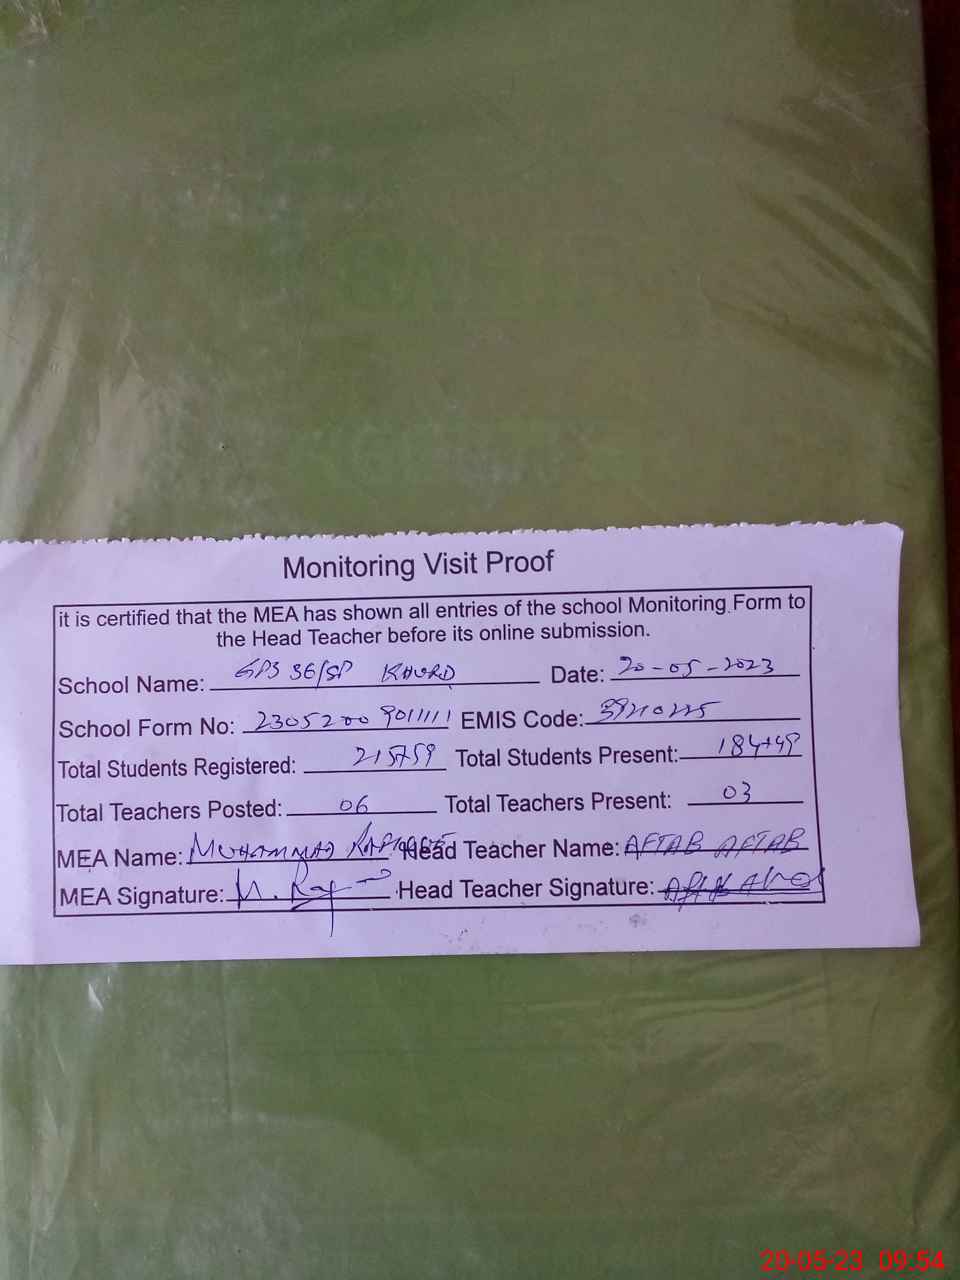 Monitoring Visit Proof
it is certified that the MEA has shown all entries of the school Monitoring Form to
the Head Teacher before its online submission.
School Name: GPS 36/SP KHURD Date: 20-05-2023
School Form No: 23052009011111 EMIS Code: 39210225
Total Students Registered: Total Students Present: 184+49
Total Teachers Posted: 06 Total Teachers Present: 03
MEA Name: MUHAMMAD Head Teacher Name: AFTAB AFTAB
MEA Signature: Head Teacher Signature:
20-05-23 09.54